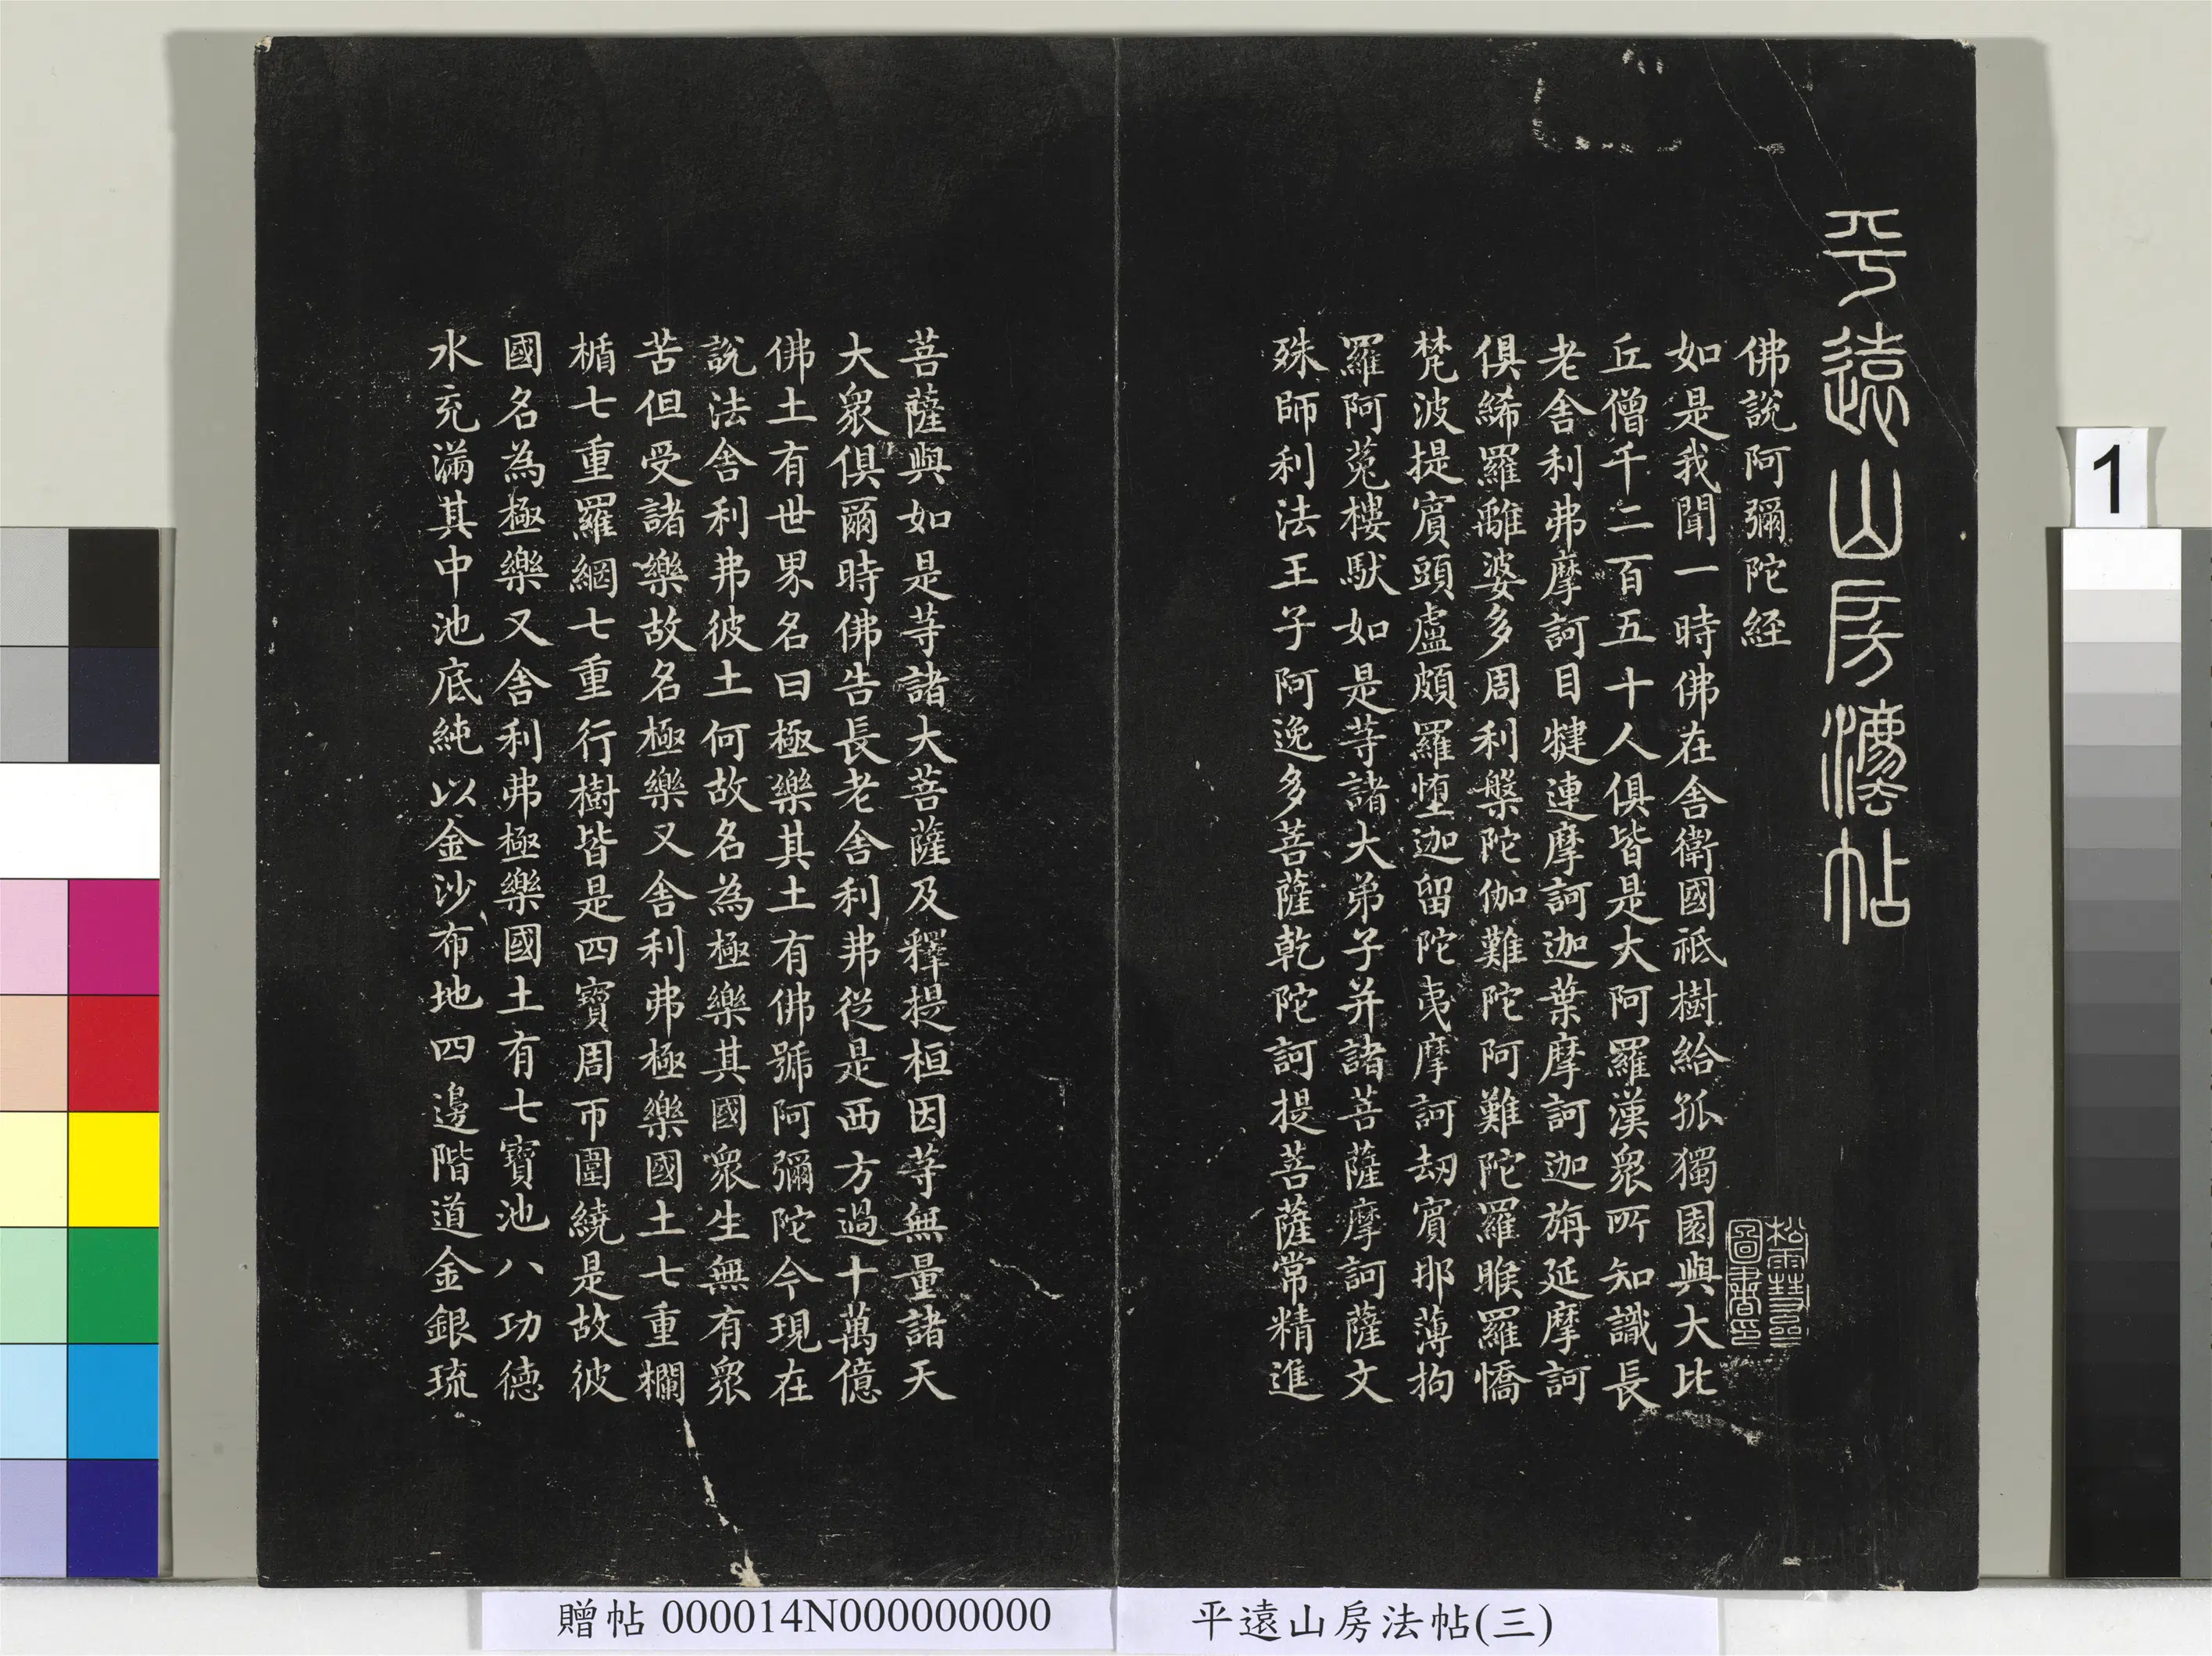 平遠山房灋帖
佛說阿彌陀經
如是我聞一時佛在舍衛國祇樹給孤獨園與大比
丘僧千二百五十人俱皆是大阿羅漢眾所知識長
老舍利弗摩訶目犍連摩訶迦葉摩訶迦旃延摩訶
俱絺羅離婆多周利槃陀伽難陀阿難陀羅睺羅憍
梵波提賓頭盧頗羅墮迦留陀夷摩訶劫賓那薄拘
羅阿菟樓馱如是等諸大弟子并諸菩薩摩訶薩文
殊師利法王子阿逸多菩薩乾陀訶提菩薩常精進
菩薩與如是等諸大菩薩及釋提桓因等無量諸天
大眾俱爾時佛告長老舍利弗從是西方過十萬億
佛土有世界名曰極樂其土有佛號阿彌陀今現在
說法舍利弗彼土何故名為極樂其國眾生無有眾
苦但受諸樂故名極樂又舍利弗極樂國土七重欄
楯七重羅網七重行樹皆是四寶周帀圍繞是故彼
國名為極樂又舍利弗極樂國土有七寶池八功德
水充滿其中池底純以金沙布地四邊階道金銀琉
圖書印
贈帖 000014N000000000
平遠山房法帖(三)
1